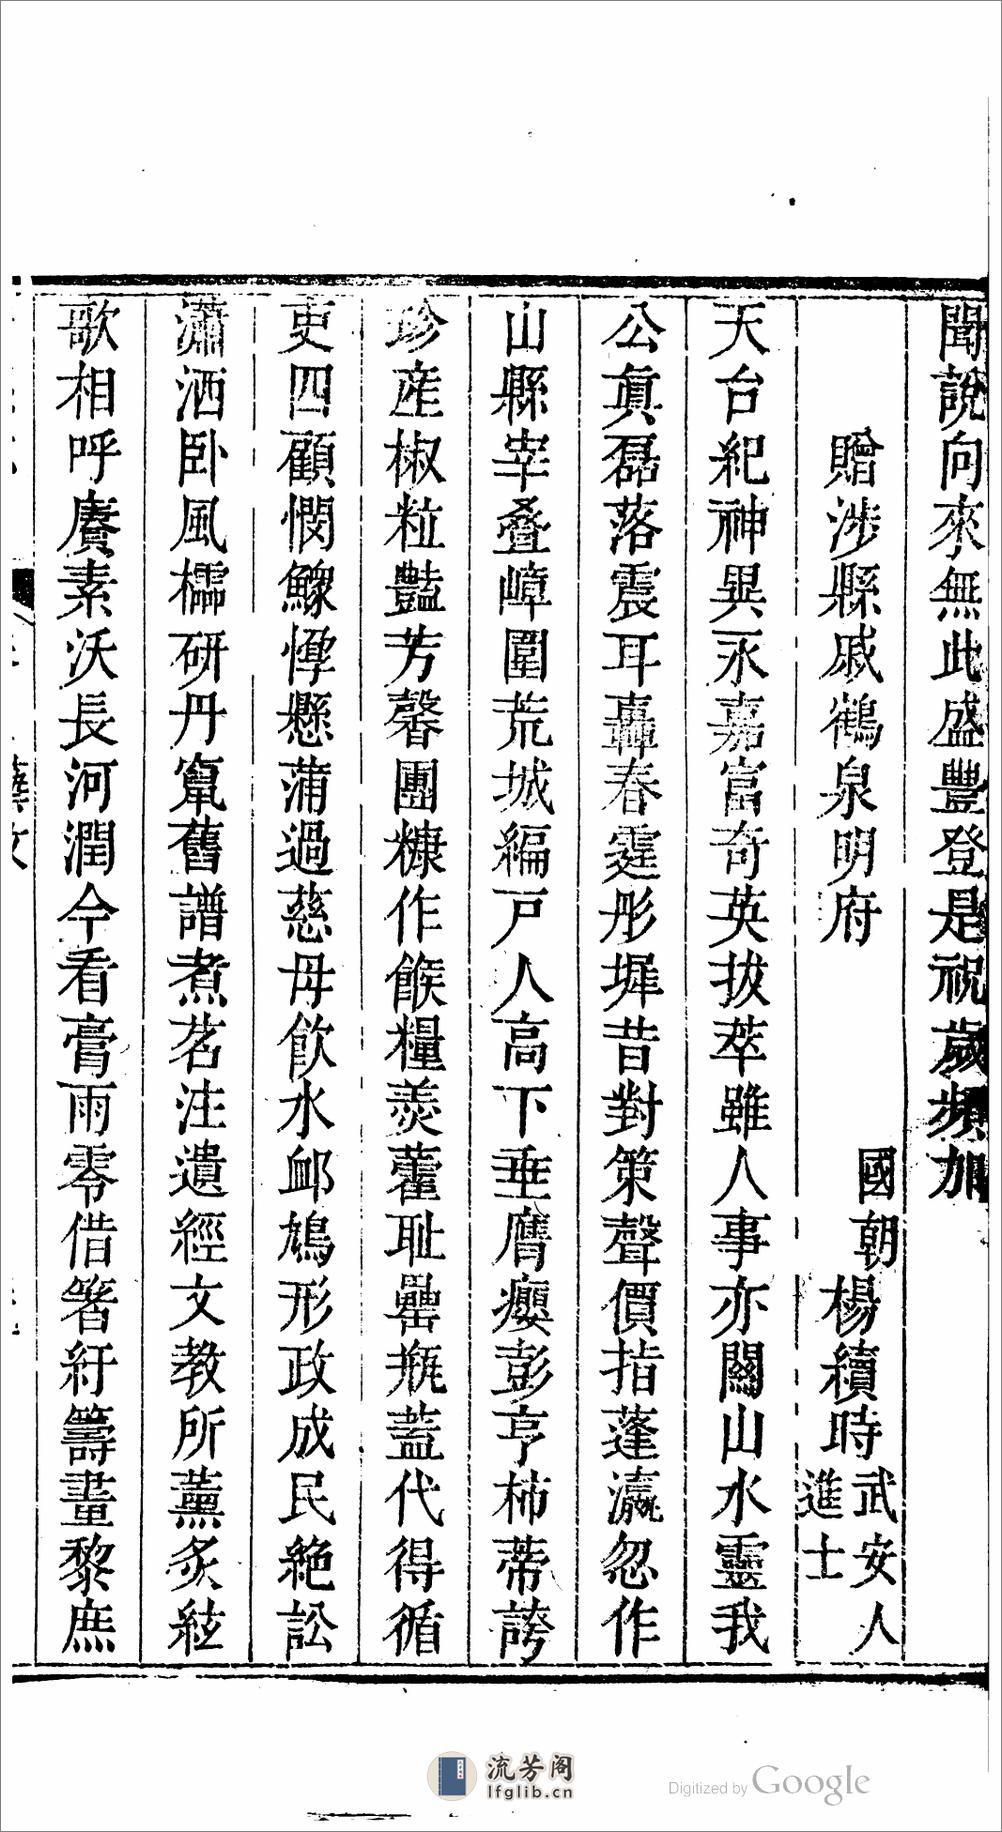 聞說向來無此盛豐登是祝歲頻加
贈涉縣戚鶴泉明府
國朝楊續時武安人進士
天台紀神異永嘉富奇英拔萃雖人事亦關山水靈我
公真磊落震耳轟春霆彤墀昔對策聲價指蓬瀛忽作
山縣宰叠嶂圍荒城編戸人高下垂膺癭彭亨柿蒂誇
珍産椒粒豔芳馨團糠作餱糧羮藿耻罍瓶蓋代得循
吏四顧憫鰥惸懸蒲過慈母飲水邺鳩形政成民絶訟
瀟洒卧風檽研丹竄舊譜煮茗注遺經文教所薰炙絃
歌相呼賡素沃長河潤今看膏雨零借箸紆籌畫黎庶
藝文
流芳阁
lfglib.cn
Digitized by Google